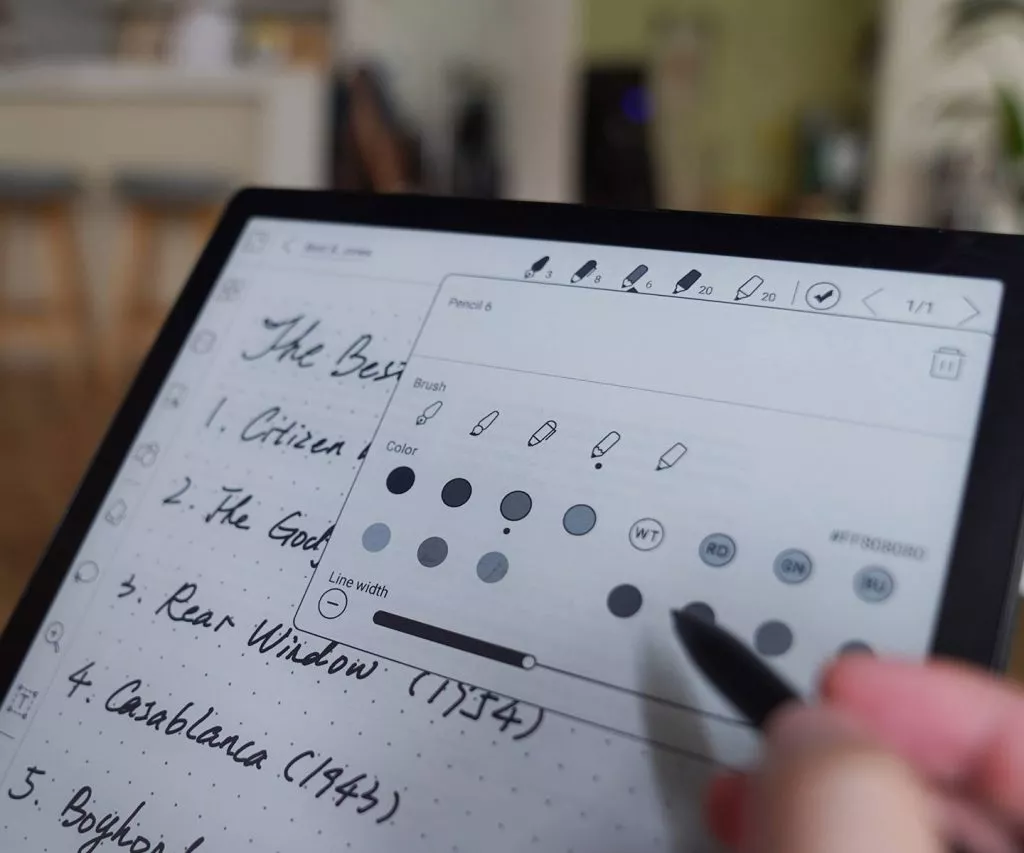 3 8 6 20 20 1/1
Pencil 6
Brush
Color
WT RD GN BU
#FF808080
Line width
The Best
1. Citizen
2. The God
3. Rear Window (1954)
4. Casablanca (1943)
5. Boyhoo